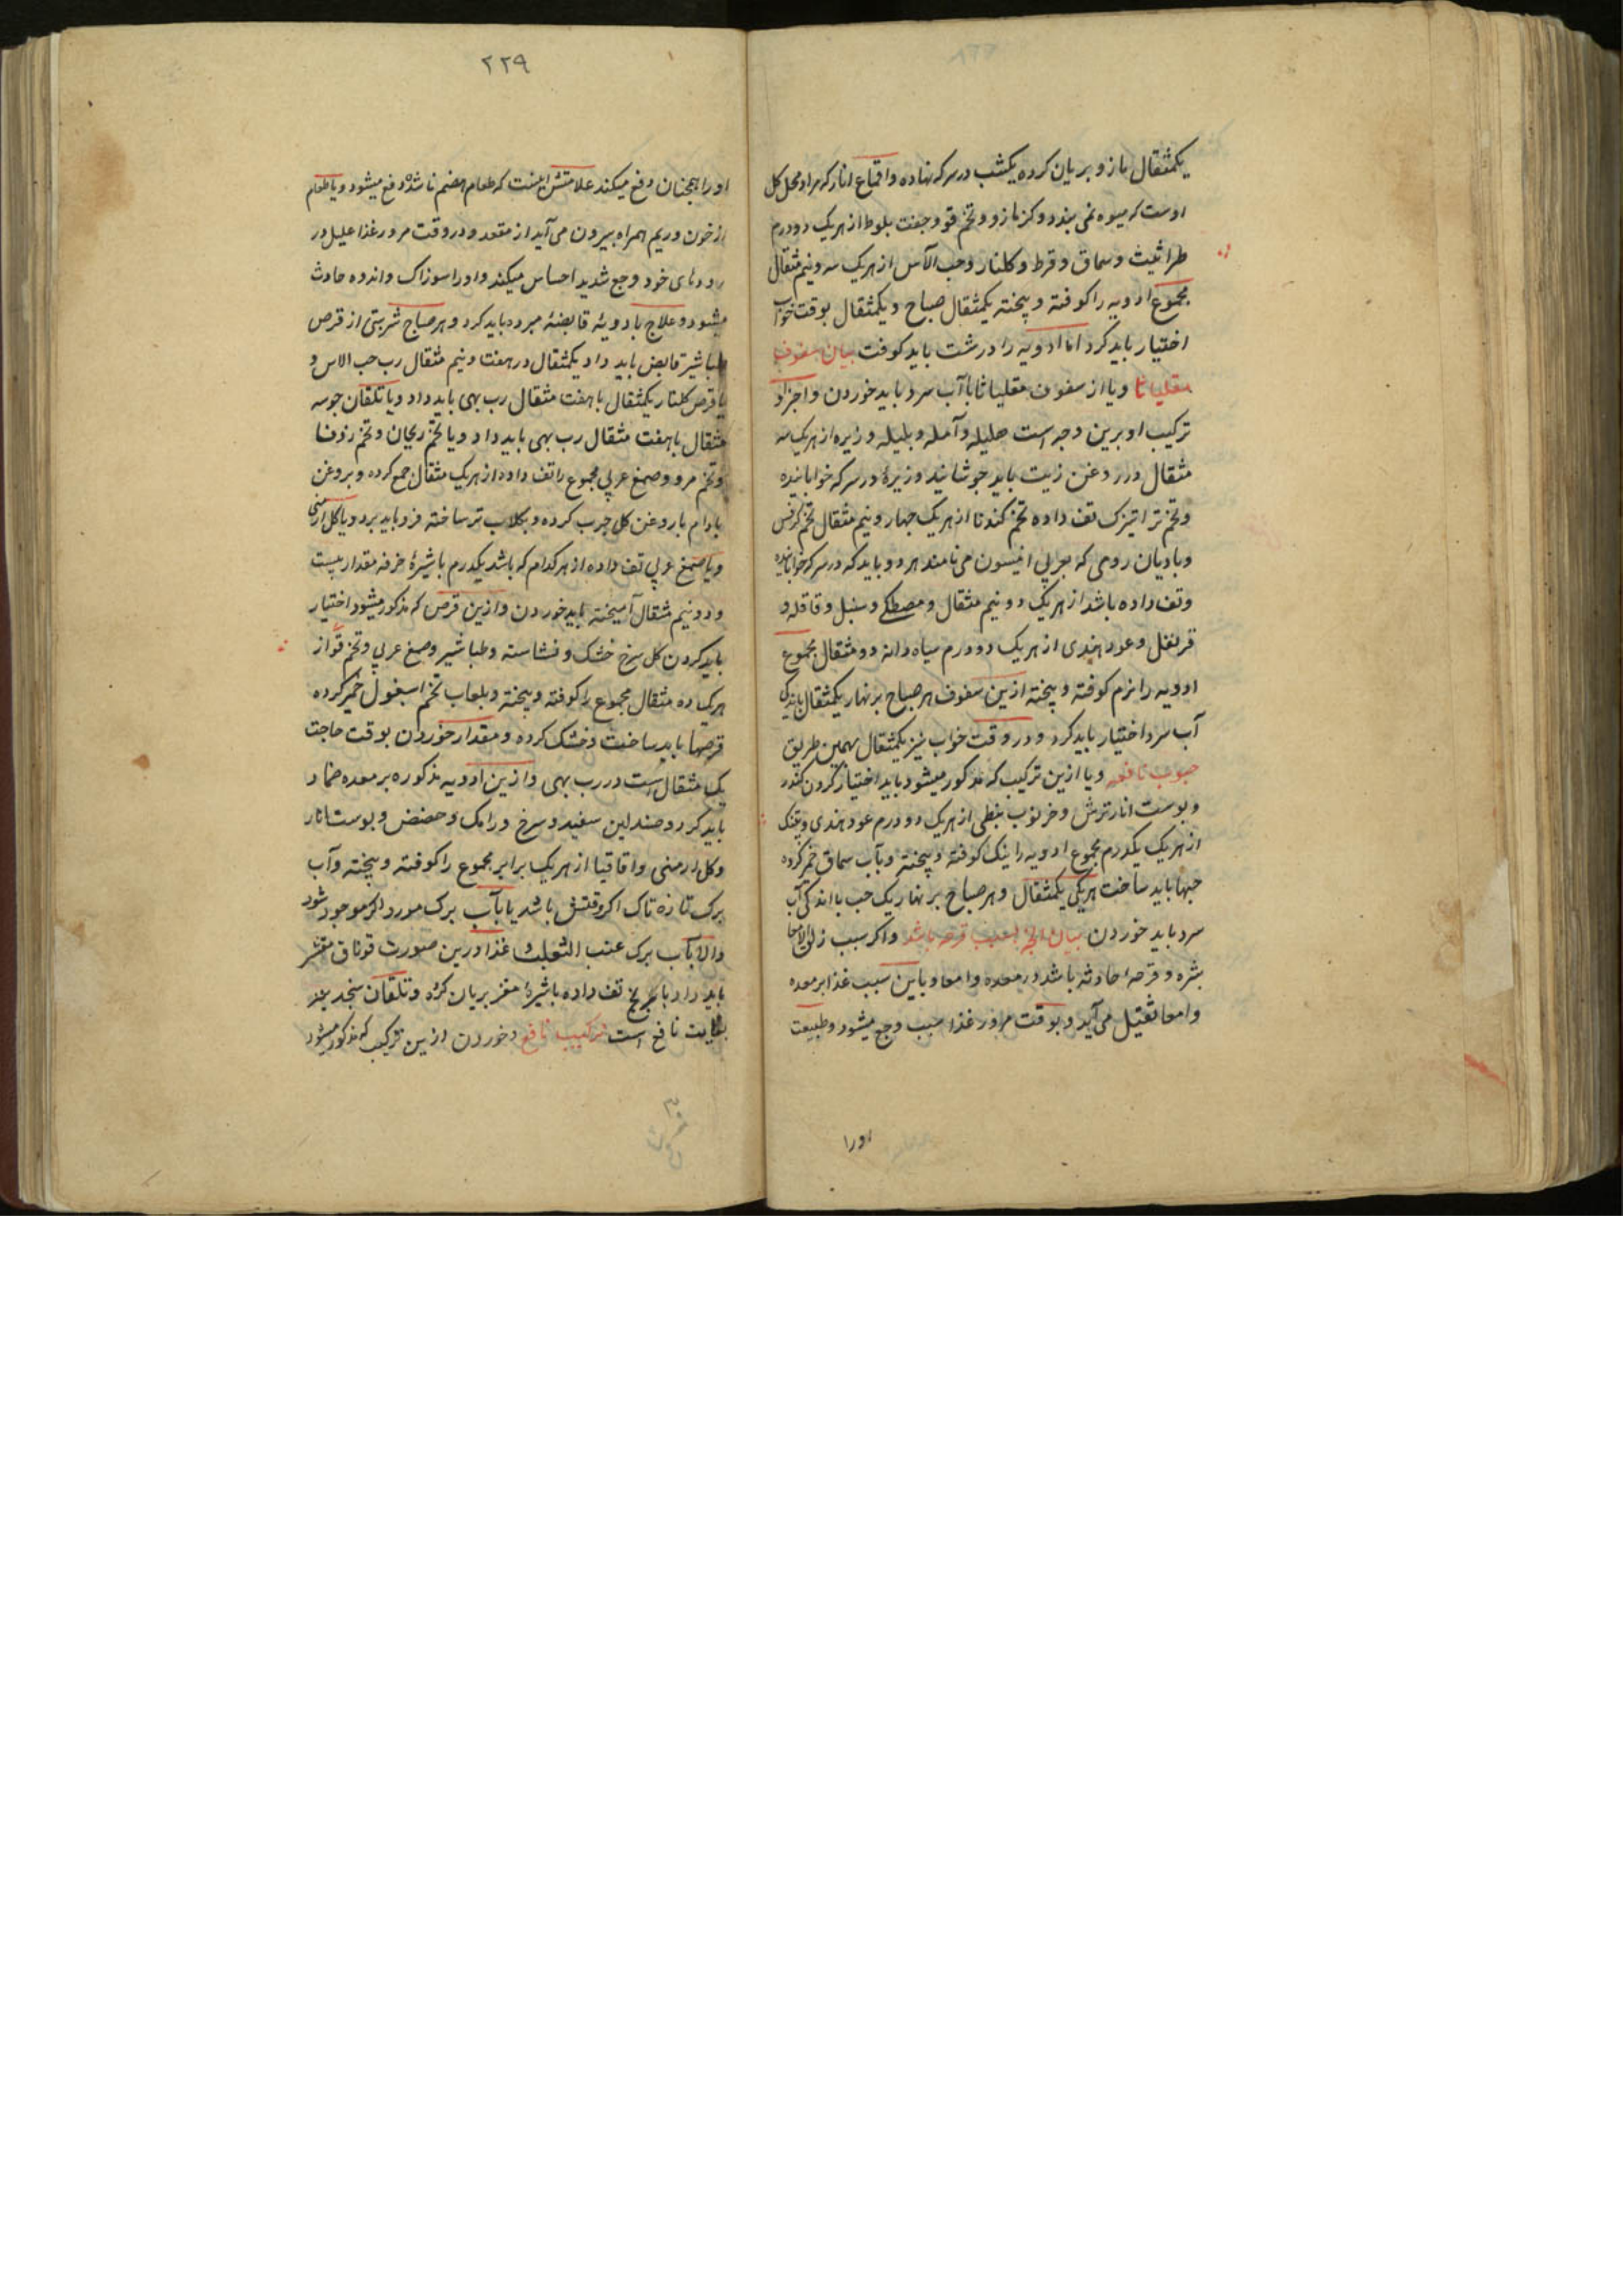 یکمثقال مازو بریان کرده یکشب در سرکه نهاده و اقماع انار که مراد محل کل
اوست که میوه نمی بندد و کزمازو و تخم قو و جفت بلوط از هریک دو درم
طراثیث و سماق و قرط و کلنار و حب الآس از هریک سه و نیم مثقال
مجموع ادویه را کوفته و بیخته یکمثقال صباح و یکمثقال بوقت خواب
اختیار باید کرد اما ادویه را درشت باید کوفت بیان سفوف
مقلیاثا و یا از سفوف مقلیاثا با آب سرد باید خوردن و اجزاء
ترکیب او برین وجه است هلیله و آمله و بلیله و زیره از هریک سه
مثقال در روغن زیت باید جوشانید و زیرهٔ در سرکه خوابانیده
و تخم تراتیزک تف داده تخم کندنا از هریک چهار و نیم مثقال تخم کرفس
و بادیان رومی که بعربی انیسون می نامند هر دو باید که در سرکه خوابانیده
و تف داده باشد از هریک دو نیم مثقال و مصطکی و سنبل و قاقله و
قرنفل و عود هندی از هریک دو درم سیاه دانه دو مثقال مجموع
ادویه را نرم کوفته و بیخته ازین سفوف هر صباح بر نهار یکمثقال باندکی
آب سرد اختیار باید کرد و در وقت خواب نیز یکمثقال بهمین طریق
حبوب نافعه و یا ازین ترکیب که مذکور میشود باید اختیار کردن کندر
و پوست انار ترش و خرنوب نبطی از هریک دو درم عود هندی و
از هریک یکدرم مجموع ادویه را نیک کوفته و بیخته و بآب سماق خمر کرده
حبها باید ساخت هریکی یکمثقال و هر صباح بر نهار یک حب با اندکی آب
سرد باید خوردن بیان انچه بسبب قرحه باشد و اکر سبب زلق الامعا
بثره و قرحهٔ حادثه باشد در معده و امعا و باین سبب غذا بر معده
و امعا ثقیل می آید و بوقت مرور غذا سبب وجع میشود و طبیعت
اورا
۲۲۹
اورا همچنان دفع میکند علامتش اینست که طعام هضم ناشده دفع میشود و با طعام
از خون و ریم همراه بیرون می آید از مقعد و در وقت مرور غذا علیل در
رودهای خود وجع شدید احساس میکند و اورا سوزاک و اندوه حادث
میشود و علاج بادویهٔ قابضهٔ مبرده باید کرد و هر صباح شربتی از قرص
طباشیر قابض باید داد یکمثقال در هفت و نیم مثقال رب حب الاس و
یا قرص کلنار یکمثقال با هفت مثقال رب بهی باید داد و یا تلقان جو سه
مثقال با هفت مثقال رب بهی باید داد و یا تخم ریحان و تخم
و تخم مرو و صمغ عربی مجموع را تف داده از هریک مثقال جمع کرده و بروغن
بادام یا روغن کل چرب کرده و بکلاب تر ساخته فرو باید برد و یا کل ارمنی
و یا صمغ عربی تف داده از هر کدام که باشد یکدرم با شیرهٔ خرفه مقدار بیست
و دو نیم مثقال آمیخته باید خوردن و ازین قرص که مذکور میشود اختیار
باید کردن کل سرخ خشک و نشاسته و طباشیر و صمغ عربی و تخم قو از
هریک ده مثقال مجموع را کوفته و بیخته و بلعاب تخم اسبغول خمر کرده
قرصها باید ساخت و خشک کرده و مقدار خوردن بوقت حاجت
یک مثقال است در رب بهی و ازین ادویه مذکوره بر معده ضماد
باید کرد و صندلین سفید و سرخ و رامک و حضض و پوست انار
و کل ارمنی و اقاقیا از هریک برابر مجموع را کوفته و بیخته و آب
برک تازه تاک اکر وقتش باشد یا بآب برک مورد اکر موجود شود
والا بآب برک عنب الثعلب و غذا درین صورت قوناق مقشر
باید داد با برنج تف داده با شیرهٔ مغز بریان کرده و تلقان سنجد نیز
بغایت نافع است ترکیب نافع و خوردن ازین ترکیب که مذکور میشود